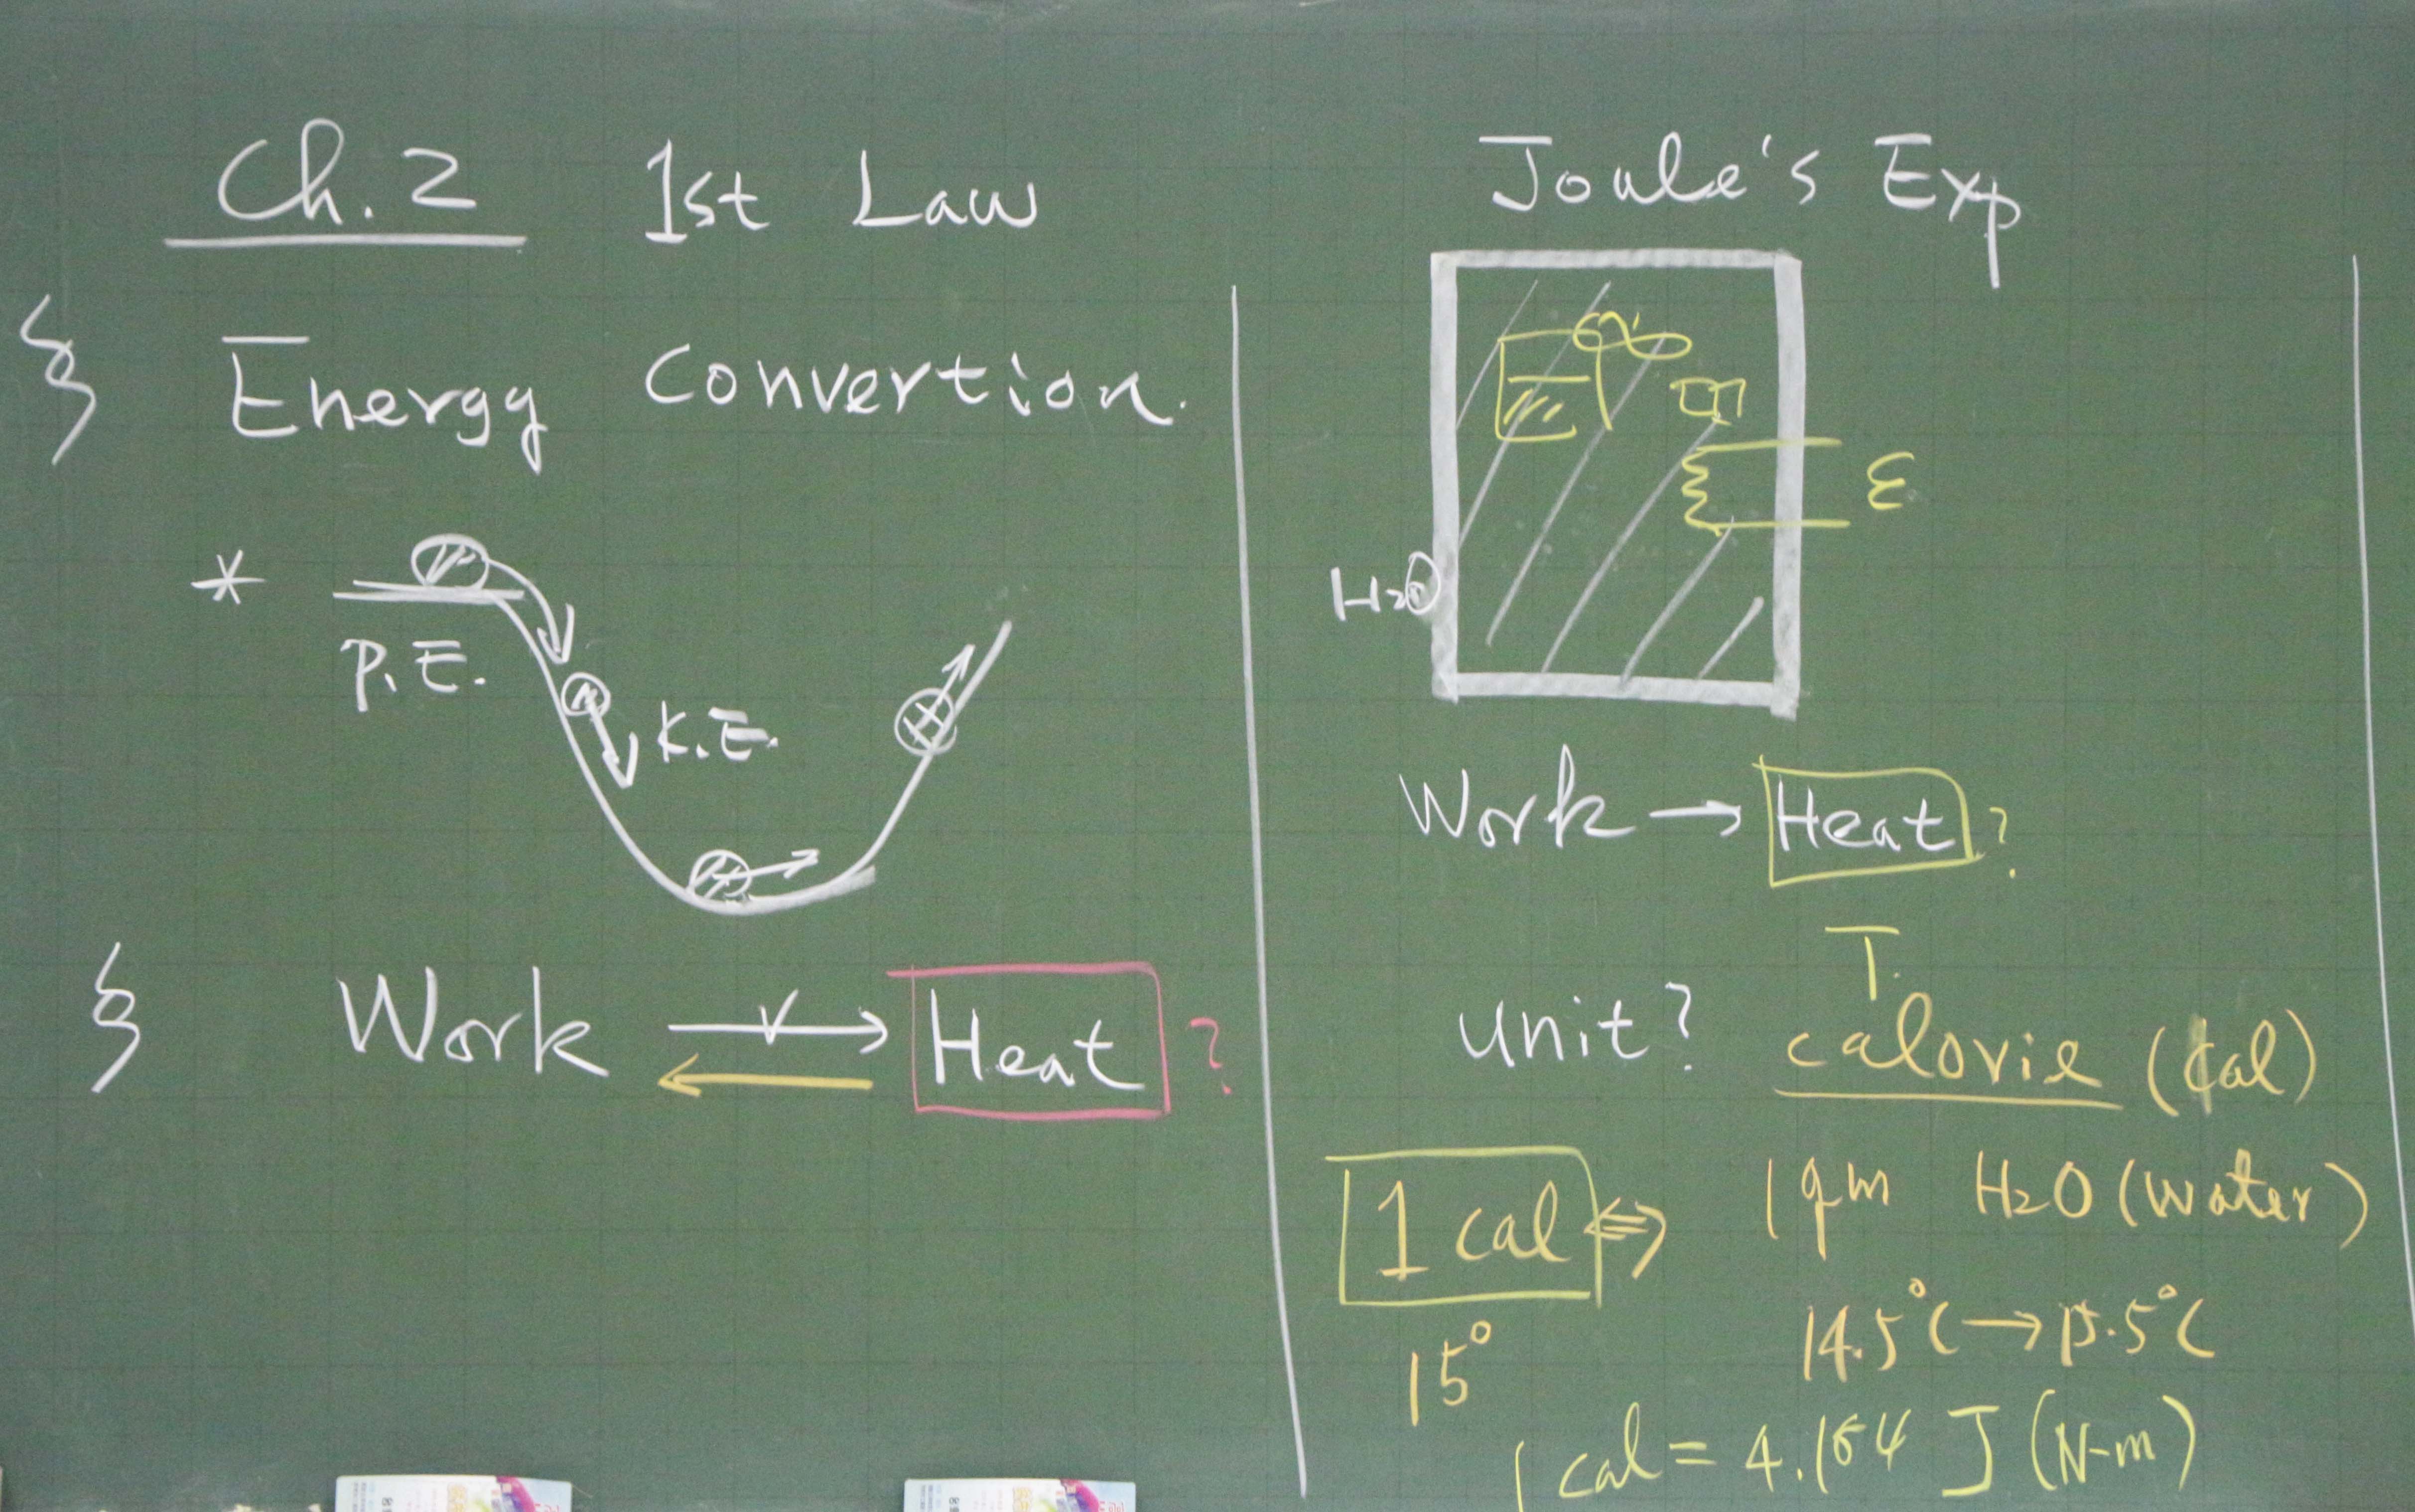 Ch. 2 1st Law
§ Energy Convertion.
* P.E.
K.E.
§ Work ⟶ ⟵ Heat ?
Joule's Exp
ε
H₂O
Work → Heat ?
T.
unit? calorie (cal)
1 cal ⇔ 1 gm H₂O (water)
15° 14.5°C → 15.5°C
1 cal = 4.184 J (N-m)